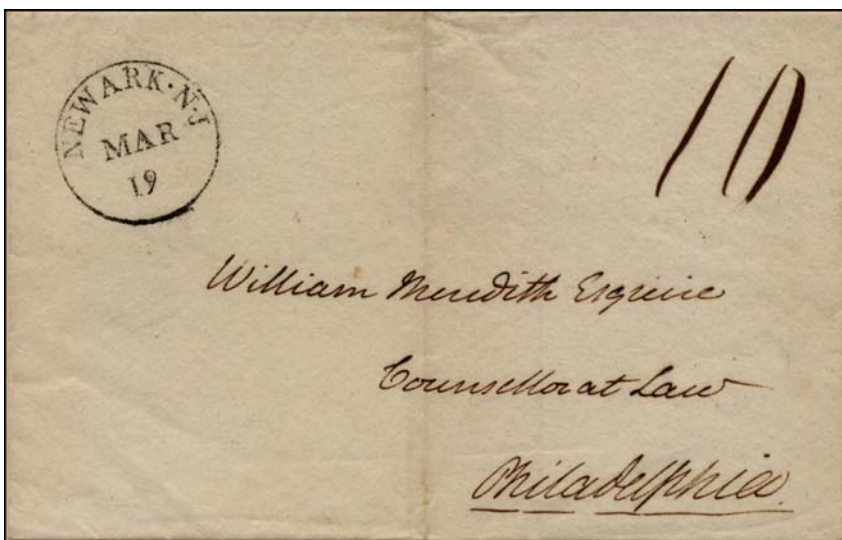 NEWARK·N·J
MAR
19
10
William Meredith Esquire
Counsellor at Law
Philadelphia.